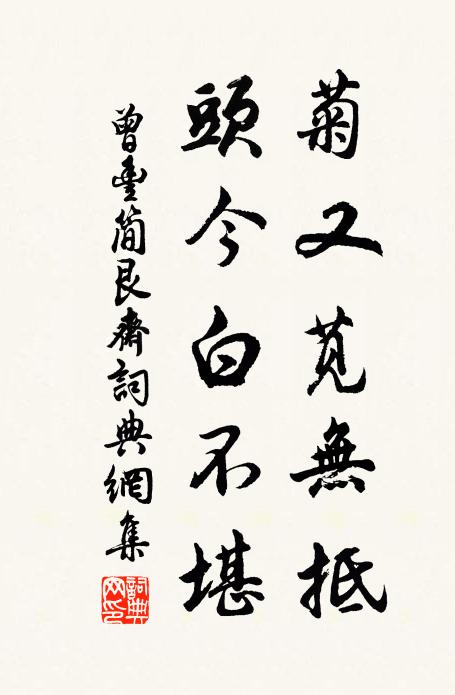 菊又莧無抵
頭今白不堪
曾豐簡艮齋詞典網集
詞典網印